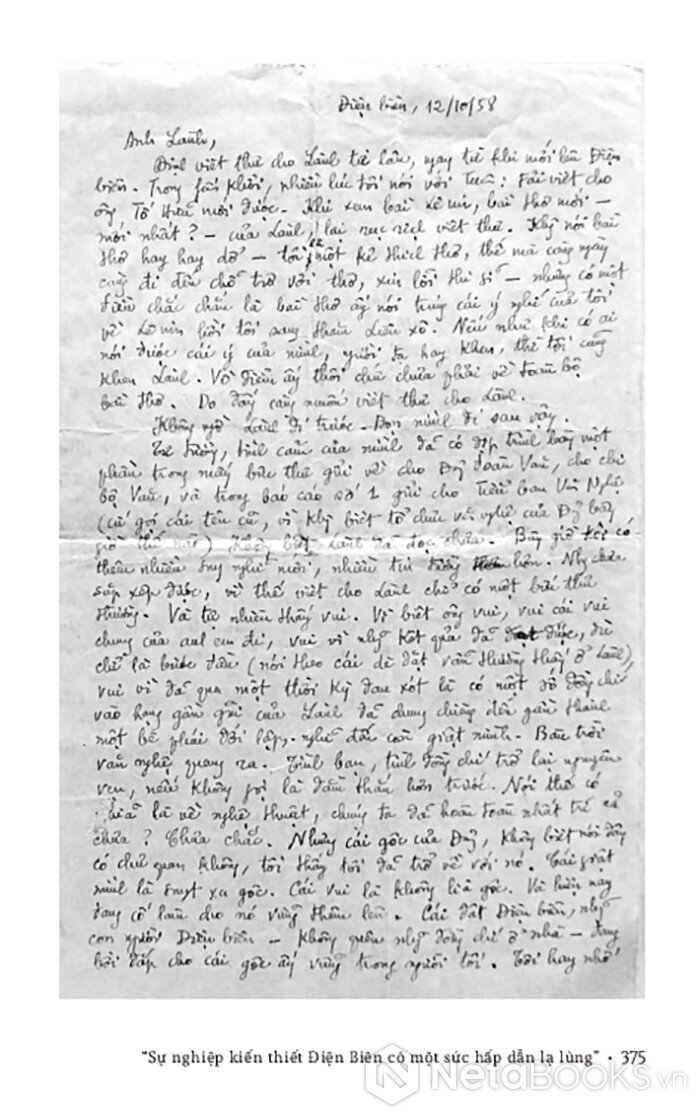 Điện biên, 12/10/58
Anh Lành,
Định viết thư cho Lành từ lâu, ngay từ khi mới lên Điện
biên. Trong fấn khởi, nhiều lúc tôi nói với Tuân: Fải viết cho
ông Tố Hữu mới được. Khi xem bài Lê nin, bài thơ mới –
mới nhất? – của Lành, lại rục rịch viết thư. Khg nói bài
thơ hay hay dở – tôi là một kẻ thích thơ, thế mà càng ngày
càng đi đến chỗ trơ với thơ, xin lỗi thi sĩ – nhưng có một
điều chắc chắn là bài thơ ấy nói trúng cái ý nghĩ của tôi
về Lê nin hồi tôi sang thăm Liên xô. Nếu như khi có ai
nói được cái ý của mình, người ta hay khen, thì tôi cũng
khen Lành. Về điểm ấy thôi chứ chưa phải về toàn bộ
bài thơ. Do đấy càng muốn viết thư cho Lành.
Không ngờ Lành đi trước. Bọn mình đi sau vậy.
Tư tưởng, tình cảm của mình đã có dịp trình bày một
phần trong mấy bức thư gửi về cho Đg đoàn Văn, cho chi
bộ Văn, và trong báo cáo số 1 gửi cho Tiểu ban Văn Nghệ
(cứ gọi cái tên cũ, vì khg biết tổ chức văn nghệ của Đg bây
giờ thế nào) Khg biết Lành đã đọc chưa. Bây giờ có
thêm nhiều suy nghĩ mới, nhiều hơn. Nhg chưa
sắp xếp được, vì thế viết cho Lành chỉ có một bức thư
thường. Và tự nhiên thấy vui. Vì biết ông vui, vui cái vui
chung của anh em đi, vui vì nhg kết quả đã đạt được, dù
chỉ là bước đầu (nói theo cái dè dặt vẫn thường thấy ở Lành),
vui vì đã qua một thời kỳ đau xót là có một số đồng chí
vào hàng gần gũi của Lành đã dung chiềng đến gần thành
một bè phái đối lập, nghĩ đến còn giật mình. Bầu trời
văn nghệ quang ra. Tình bạn, tình đồng chí trở lại nguyên
vẹn, nếu không gọi là đằm thắm hơn trước. Nói thế có
phải là về nghệ thuật, chúng ta đã hoàn toàn nhất trí cả
chưa? Chưa chắc. Nhưng cái gốc của Đg, không biết nói đây
có chủ quan không, tôi thấy tôi đã trở về với nó. Cái giật
mình là suýt xa gốc. Cái vui là không lìa gốc. Và hiện nay
đang cố làm cho nó vững thêm lên. Cái đất Điện biên, nhg
con người Điện biên – không quên nhg đồng chí ở nhà – đang
bồi đắp cho cái gốc ấy vững trong người tôi. Tôi hay nhớ
"Sự nghiệp kiến thiết Điện Biên có một sức hấp dẫn lạ lùng" • 375
NetaBooks.vn